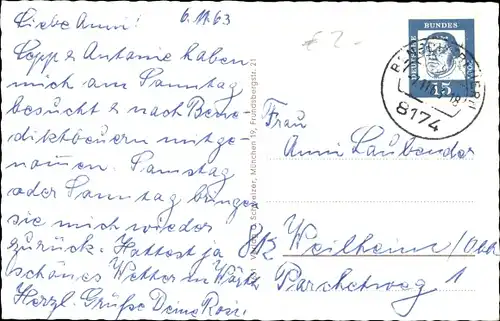 6.11.63
Liebe Anni!
Sepp & Antonie haben
mich am Samstag
besucht & nach Bene-
diktbeuern mitge-
nommen. Samstag
oder Sonntag bringen
sie mich wieder
zurück. Hattest ja
schönes Wetter in
Herzl. Grüße Deine Rosi.
£ 2.-
DEUTSCHE BUNDESPOST
15
8174
Schweizer, München 19, Frundsbergstr. 21
Frau
Anni Laubender
812 Weilheim/Obb
Parchetweg 1